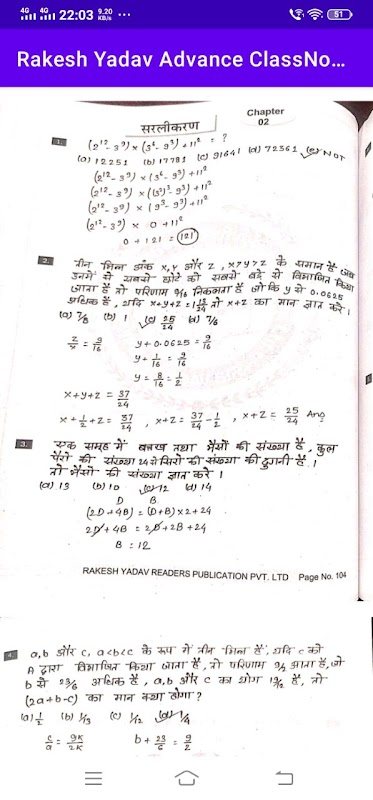 4G 4G 22:03 9.20 KB/s ...
Rakesh Yadav Advance ClassNo...
Chapter
02
सरलीकरण
1. (2¹² - 3⁹) × (3⁶ - 9³) + 11² = ?
(a) 12251 (b) 17781 (c) 91641 (d) 72361 (e) NOT
(2¹² - 3⁹) × (3⁶ - 9³) + 11²
(2¹² - 3⁹) × ((3²)³ - 9³) + 11²
(2¹² - 3⁹) × (9³ - 9³) + 11²
(2¹² - 3⁹) × 0 + 11²
0 + 121 = 121
2. तीन भिन्न अंक x, y और z, x>y>z के समान हैं जब
उनमें से सबसे छोटे को सबसे बड़े से विभाजित किया
जाता है तो परिणाम 9/16 निकलता है जो कि y से 0.0625
अधिक है, यदि x+y+z = 1 13/24 तो x+z का मान ज्ञात करे।
(a) 7/8 (b) 1 (c) 25/24 (d) 7/6
z/x = 9/16 y + 0.0625 = 9/16
y + 1/16 = 9/16
y = 8/16 = 1/2
x+y+z = 37/24
x + 1/2 + z = 37/24 , x+z = 37/24 - 1/2 , x+z = 25/24 Ans
3. एक समूह में बत्तख तथा भैंसों की संख्या है, कुल
पैरों की संख्या 24 से सिरों की संख्या की दुगनी है।
तो भैंसों की संख्या ज्ञात करे।
(a) 13 (b) 10 (c) 12 (d) 14
D B
(2D + 4B) = (D+B) × 2 + 24
2D + 4B = 2D + 2B + 24
B = 12
RAKESH YADAV READERS PUBLICATION PVT. LTD Page No. 104
4. a, b और c, a<b<c के रूप में तीन भिन्न हैं, यदि c को
A द्वारा विभाजित किया जाता है, तो परिणाम 9/2 आता है, जो
b से 23/6 अधिक है, a, b और c का योग 19/12 है, तो
(2a+b-c) का मान क्या होगा?
(a) 1/2 (b) 1/3 (c) 1/12 (d) 1/4
c/a = 9K/2K b + 23/6 = 9/2